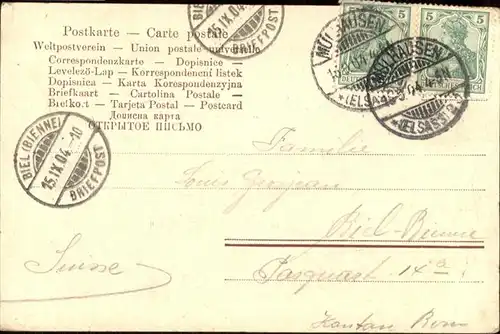 Postkarte – Carte postale
Weltpostverein – Union postale universelle
Correspondenzkarte – Dopisnice
Levelező-Lap – Korrespondenční lístek
Dopisnica – Karta Korespondenzyjna
Briefkaart – Cartolina Postale –
Brefkort – Tarjeta Postal – Postcard
Дописна карта
ОТКРЫТОЕ ПИСЬМО
BIEL (BIENNE)
15.IX.04.
BRIEFPOST
BIEL
15.IX.04.
BRIEFPOST
MÜLHAUSEN
(ELSASS)
MÜLHAUSEN
*(ELSASS)
5
5 5
Familie
Louis Grosjean
Biel-Bienne
Pasquart 14a
Kanton Bern
Suisse